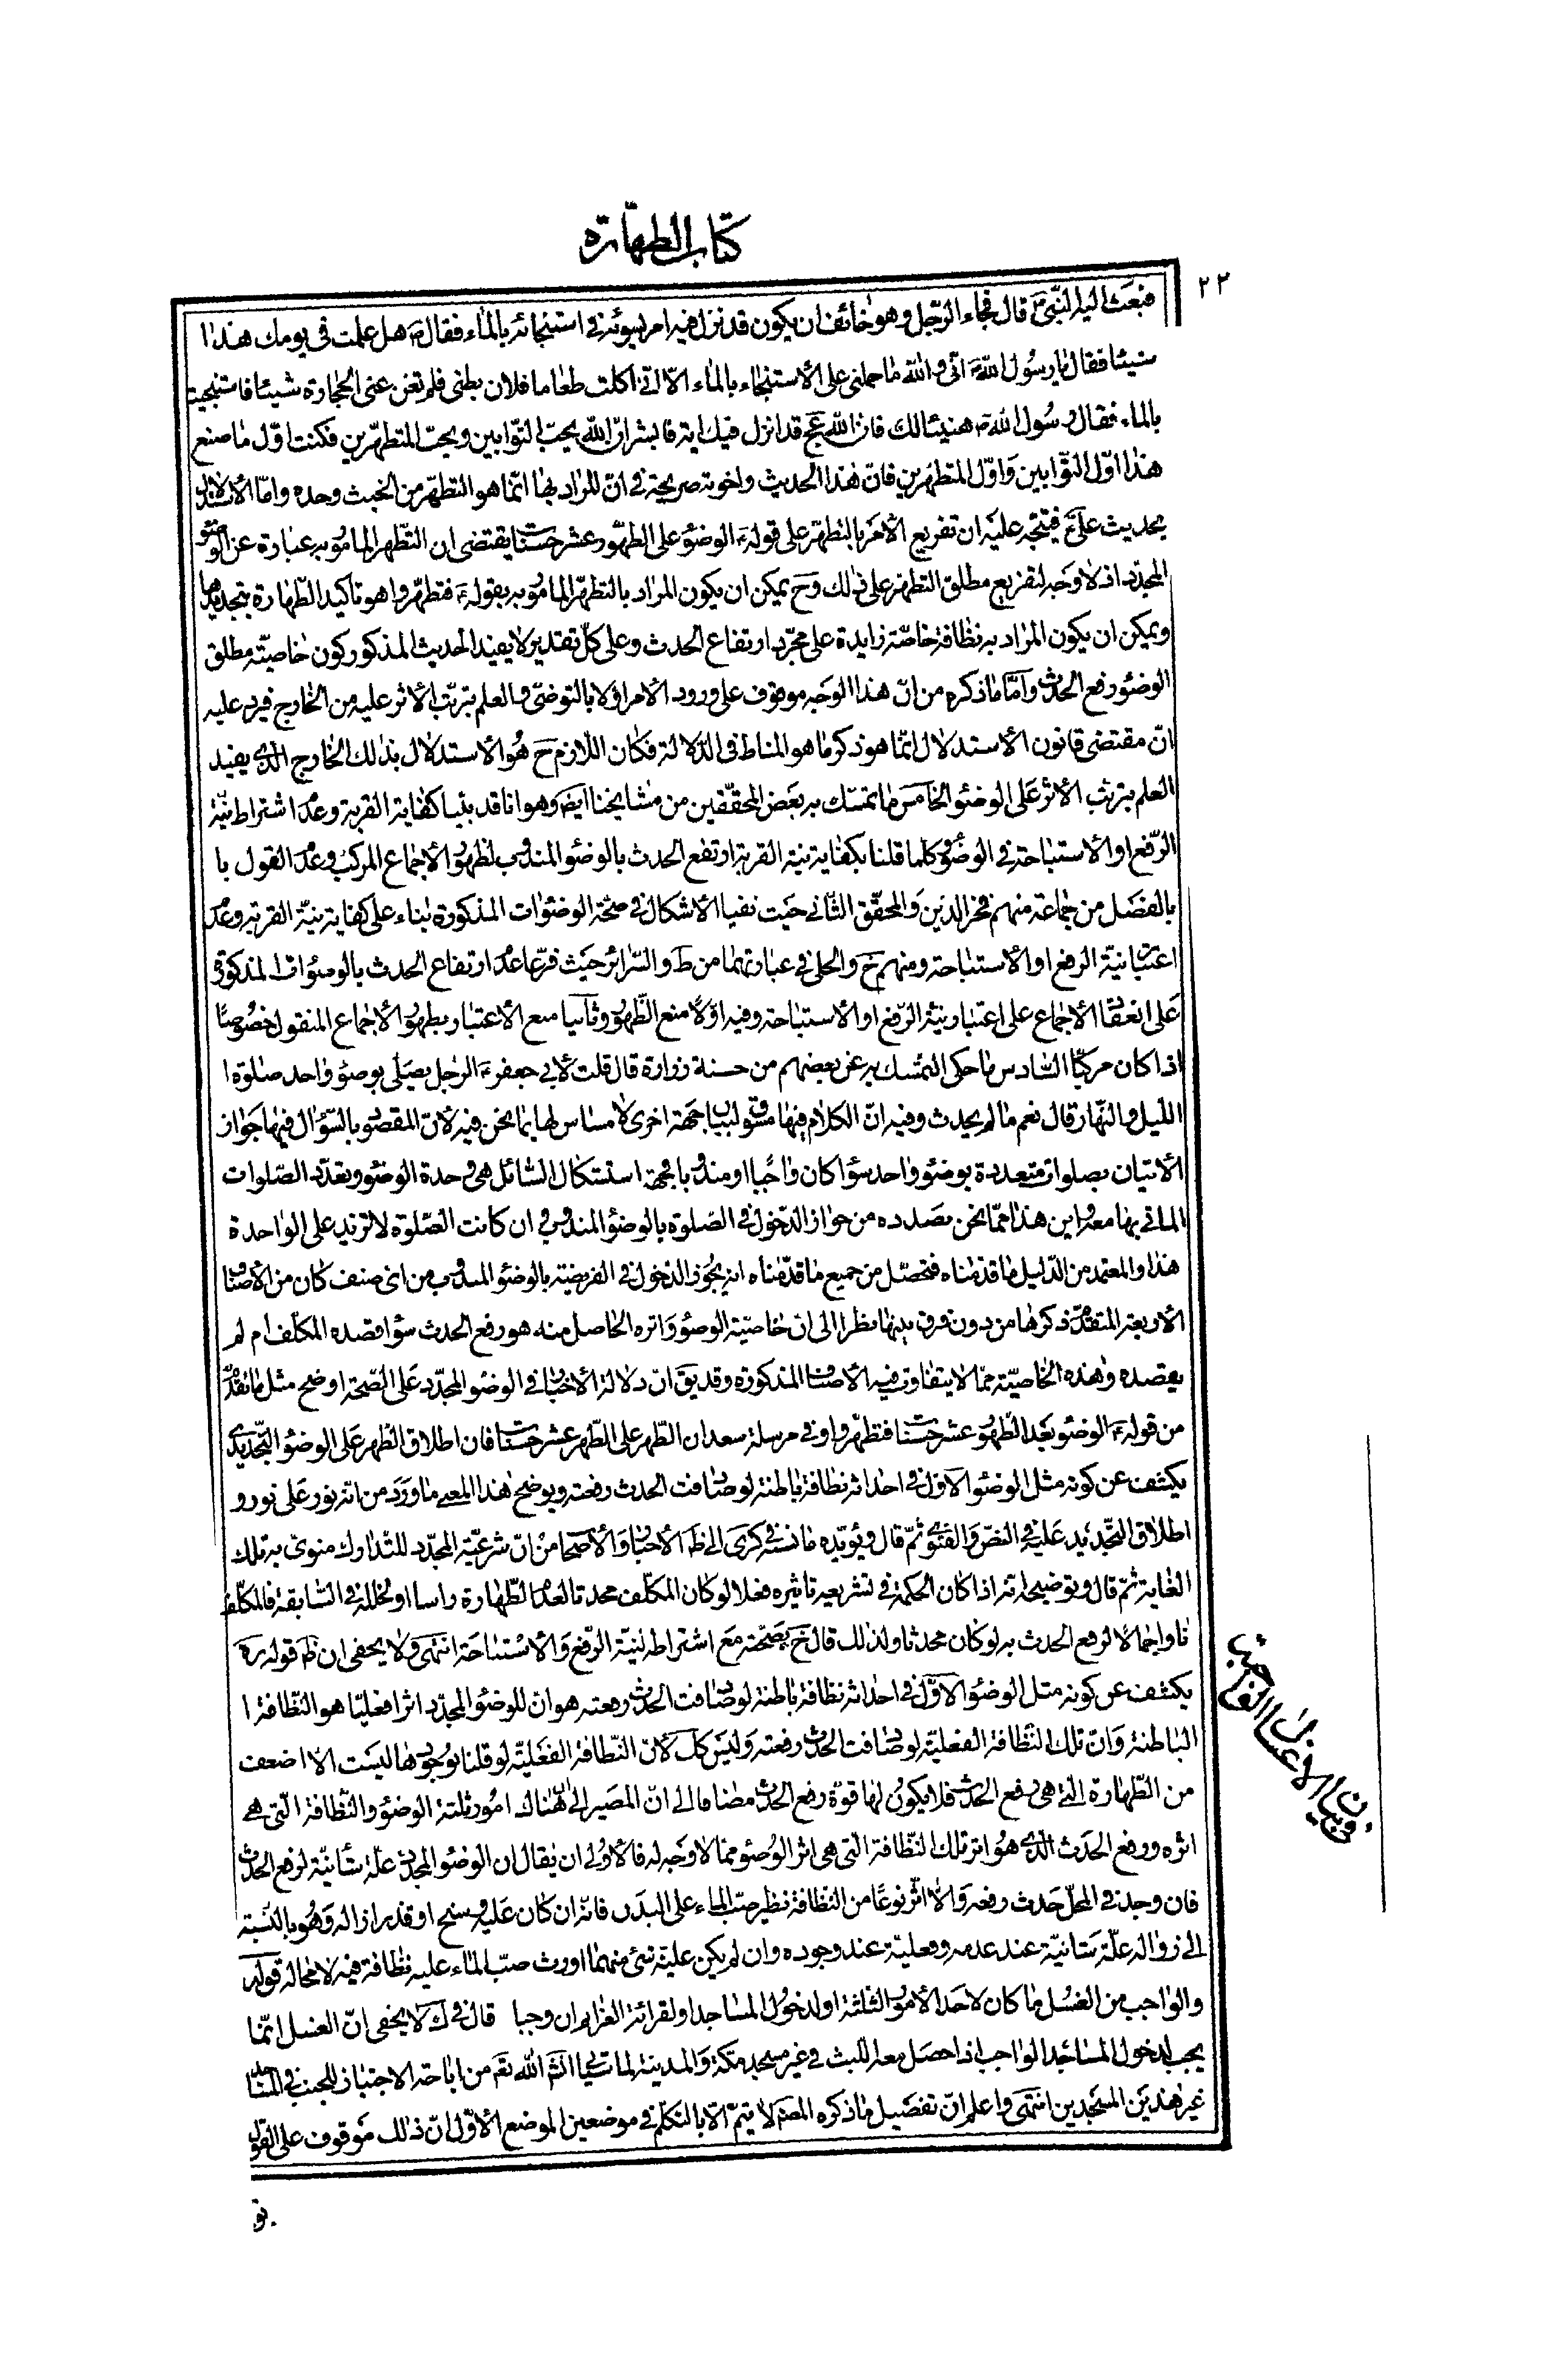 كتاب الطهارة
٢٢
فبعث اليه النبي ص قال فجاء الرجل وهو خائف ان يكون قد نزل فيه امر يسوئه في استنجائه بالماء فقال ص هل عملت في يومك هذا
شيئا فقال يا رسول الله ص اني والله ما حملني على الاستنجاء بالماء الا اني اكلت طعاما فلان بطني فلم تغن عني الحجارة شيئا فاستنجيت
بالماء فقال رسول الله ص هنيئا لك فان الله عج قد انزل فيك اية فابشر ان الله يحب التوابين ويحب المتطهرين فكنت اول ما صنع
هذا اول التوابين واول المتطهرين فان هذا الحديث واخوته صريحة في ان المراد بها انما هو التطهر من الخبث وحده واما الاستدلال
بحديث علي ع فيتجه عليه ان تفريع الامر بالتطهر على قوله ع الوضوء على الطهور عشر حسنات يقتضى ان التطهر المامور به عبارة عن الوضوء
المجدد اذ لا وجه لتفريع مطلق التطهر على ذلك وح يمكن ان يكون المراد بالتطهر المامور به بقوله ع فتطهروا هو تاكيد الطهارة بتجديدها
ويمكن ان يكون المراد به نظافة خاصة زايدة على مجرد ارتفاع الحدث وعلى كل تقدير لا يفيد الحديث المذكور كون خاصيته مطلق
الوضوء رفع الحدث واما ما ذكره من ان هذا الوجه موقوف على ورود الامر اولا بالتوضى والعلم بترتب الاثر عليه من الخارج فيرد عليه
ان مقتضى قانون الاستدلال انما هو ذكر ما هو المناط في الدلالة فكان اللازم ح هو الاستدلال بذلك الخارج الذى يفيد
العلم بترتب الاثر على الوضوء الخامس ما تمسك به بعض المحققين من مشايخنا ايض وهو انا قد بينا كفاية القربة وعدم اشتراط نية
الرفع او الاستباحة في الوضوء وكلما قلنا بكفاية نية القربة ارتفع الحدث بالوضوء المندوب لظهور الاجماع المركب وعدم القول با
بالفصل من جماعة منهم فخر الدين والمحقق الثاني حيث نفيا الاشكال في صحة الوضوات المذكورة بناء على كفاية نية القربة وعدم
اعتبار نية الرفع او الاستباحة ومنهم خ والحلى في عبارتهما من ط والسرائر حيث فرعا عدم ارتفاع الحدث بالوضوات المذكورة
على انعقاد الاجماع على اعتبار نية الرفع او الاستباحة وفيه اولا منع الظهور وثانيا منع الاعتبار بظهور الاجماع المنقول خصوصا
اذا كان مركبا السادس ما حكى التمسك به عن بعضهم من حسنة زرارة قال قلت لابي جعفر ع الرجل يصلى بوضوء واحد صلوة ا
الليل والنهار قال نعم ما لم يحدث وفيه ان الكلام فيها مسوق لبيان جهة اخرى لا مساس لها بما نحن فيه لان المقصود بالسؤال فيها جواز
الاتيان بصلوات متعددة بوضوء واحد سواء كان واجبا او مندوبا فجهة استشكال السائل هى وحدة الوضوء وتعدد الصلوات
الماتي بها معه واين هذا مما نحن بصدده من جواز الدخول في الصلوة بالوضوء المندوب وان كانت الصلوة لا تزيد على الواحدة
هذا والمعتمد من الدليل ما قدمناه فتحصل من جميع ما قدمناه انه يجوز الدخول في الفريضة بالوضوء المندوب من اى صنف كان من الاصناف
الاربعة المتقدم ذكرها من دون فرق بينها نظرا الى ان خاصية الوضوء واثره الحاصل منه هو رفع الحدث سواء قصده المكلف ام لم
يقصده وهذه الخاصية مما لا يتفاوت فيه الاصناف المذكورة وقد يق ان دلالة الاخبار في الوضوء المجدد على الصحة اوضح مثل ما تقدم
من قوله ع الوضوء بعد الطهور عشر حسنات فتطهروا وفي مرسلة سعدان الطهر على الطهر عشر حسنات فان اطلاق الطهر على الوضوء التجديدى
يكشف عن كونه مثل الوضوء الاول في احداثه نظافة باطنة لو صادفت الحدث رفعته ويوضح هذا المعنى ما ورد من انه نور على نور و
اطلاق التجديد عليه في النص والفتوى ثم قال ويؤيده ما نسبه في كرى الى ظ الاخبار والاصحاب من ان شرعية المجدد للتدارك منوى به تلك
الغاية ثم قال وتوضيحه انه اذا كان الحكمة في تشريعه تاثيره فعلا لو كان المكلف محدثا لعدم الطهارة راسا او لخلل في السابقة فالمكلف
ناو اجمالا لرفع الحدث به لو كان محدثا ولذلك قال خ بصحته مع اشتراطه لنية الرفع والاستباحة انتهى ولا يخفى ان ظ قوله ره
يكشف عن كونه مثل الوضوء الاول في احداثه نظافة باطنة لو صادفت الحدث رفعته هو ان للوضوء المجدد اثرا فعليا هو النظافة ا
الباطنة وان تلك النظافة الفعلية لو صادفت الحدث رفعته وليس كك لان النظافة الفعلية لو قلنا بوجودها ليست الا اضعف
من الطهارة التي هى رفع الحدث فلا يكون لها قوة رفع الحدث مضافا الى ان المصير الى ان هناك امور ثلثة الوضوء والنظافة التى هي
اثره ورفع الحدث الذى هو اثر تلك النظافة التى هى اثر الوضوء مما لا وجه له فالاولى ان يقال ان الوضوء المجدد علة شانية لرفع الحدث
فان وجد في المحل حدث رفعه والا اثر نوعا من النظافة نظير صب الماء على البدن فانه ان كان عليه وسخ او قذر ازاله وهو بالنسبة
الى زواله علة شانية عند عدمه وفعلية عند وجوده وان لم يكن عليه شئ منهما اورث صب الماء عليه نظافة فيه لا محالة قوله
والواجب من الغسل ما كان لاحد الامور الثلثة او لدخول المساجد او لقرائة العزايم ان وجبا قال في ك لا يخفى ان الغسل انما
يجب لدخول المساجد الواجب اذا حصل معه اللبث في غير مسجد مكة والمدينة لما سياتي انشاء الله تع من اباحة الاجتياز للجنب في المساجد
غير هذين المسجدين انتهى واعلم ان تفصيل ما ذكره المصنف لا يتم الا بالتكلم في موضعين الموضع الاول ان ذلك موقوف على القول
في بيان الاغسال الواجبة